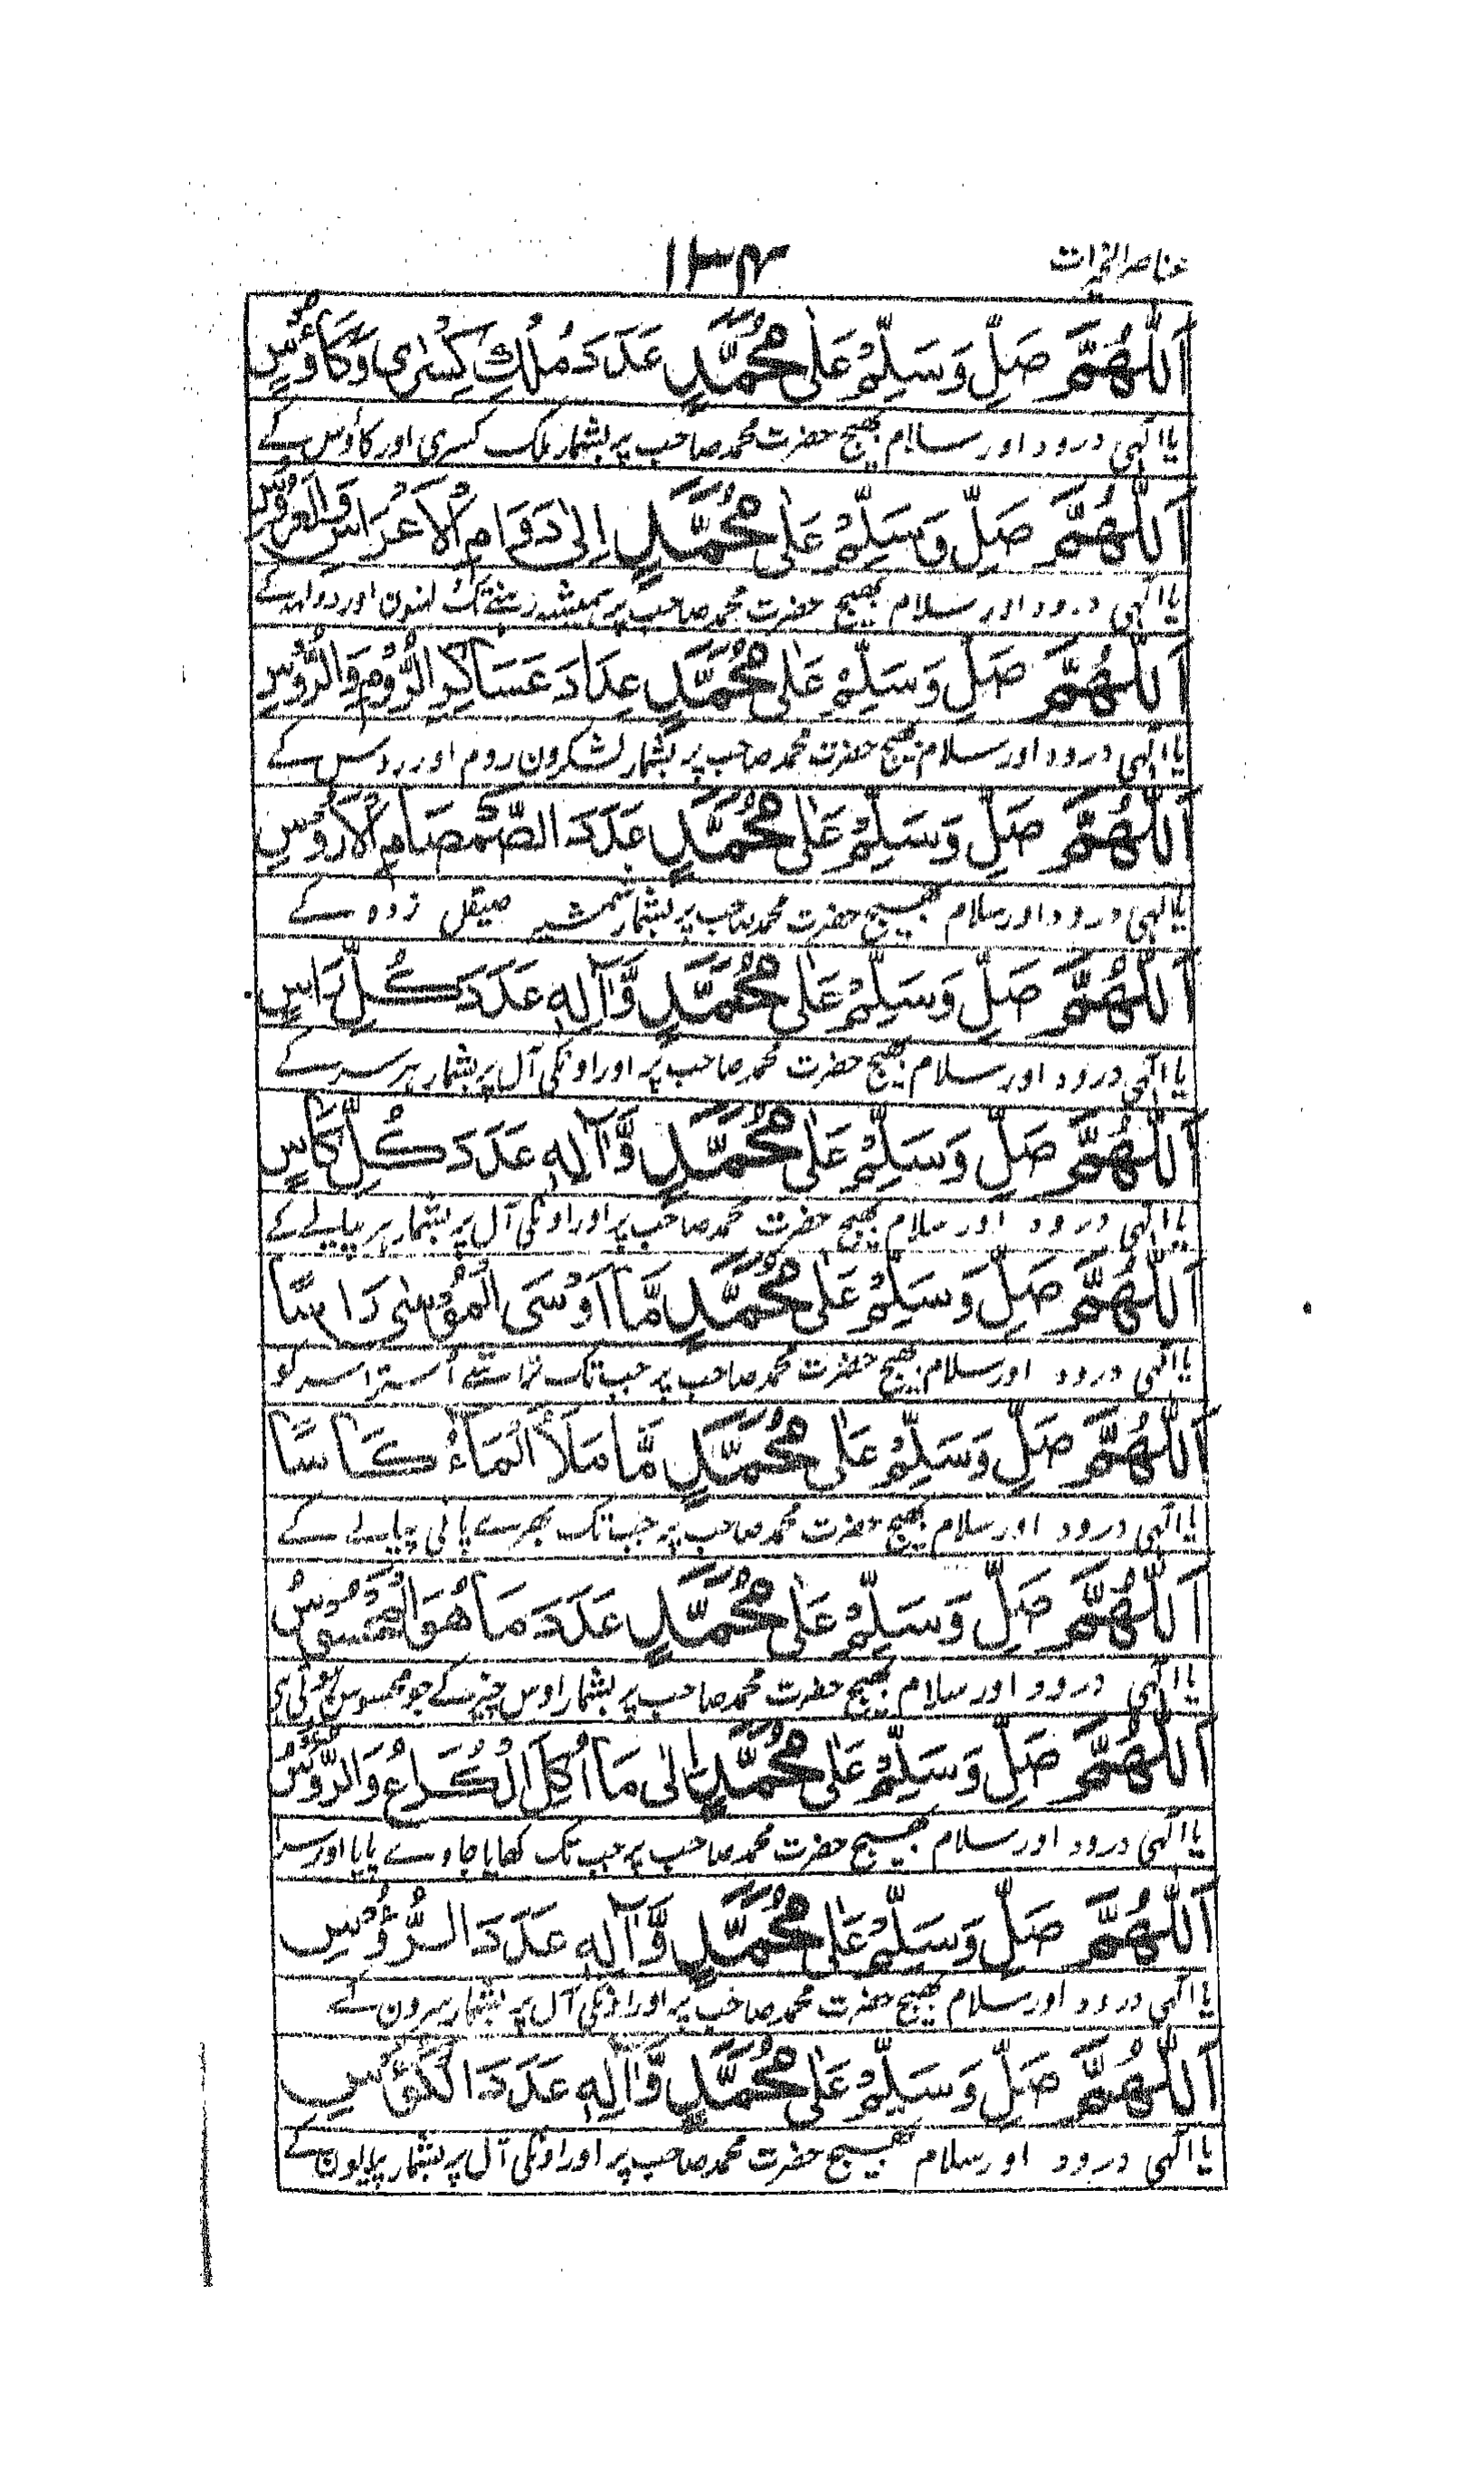 عناصر الخیرات ۱۳۴
اَللّٰهُمَّ صَلِّ وَسَلِّمْ عَلٰى مُحَمَّدٍ عَدَدَ مُلْكِ كِسْرٰى وَكَاؤُسٍ
یا الٰہی درود اور سلام بھیج حضرت محمد صاحب پر بشمار ملک کسری اور کاؤس کے
اَللّٰهُمَّ صَلِّ وَسَلِّمْ عَلٰى مُحَمَّدٍ اِلٰى دَوَامِ الْاَعْرَاسِ وَالْعَرُوْسِ
یا الٰہی درود اور سلام بھیج حضرت محمد صاحب پر ہمیشہ رہنے تک اور دولہہ کے
اَللّٰهُمَّ صَلِّ وَسَلِّمْ عَلٰى مُحَمَّدٍ عِدَادَ عَسَاكِرِ الرُّوْمِ وَالرُّوْسِ
یا الٰہی درود اور سلام بھیج حضرت محمد صاحب پر بشمار لشکرون روم اور روس کے
اَللّٰهُمَّ صَلِّ وَسَلِّمْ عَلٰى مُحَمَّدٍ عَدَدَ الصَّمْصَامِ الْاَرَؤُسِ
یا الٰہی درود اور سلام بھیج حضرت محمد صاحب پر بشمار شمشیر صیقل زدہ کے
اَللّٰهُمَّ صَلِّ وَسَلِّمْ عَلٰى مُحَمَّدٍ وَّاٰلِهٖ عَدَدَ كُلِّ رَاسٍ
یا الٰہی درود اور سلام بھیج حضرت محمد صاحب پر اور اونکی آل پر بشمار ہر سر کے
اَللّٰهُمَّ صَلِّ وَسَلِّمْ عَلٰى مُحَمَّدٍ وَّاٰلِهٖ عَدَدَ كُلِّ كَاْسٍ
یا الٰہی درود اور سلام بھیج حضرت محمد صاحب پر اور اونکی آل پر بشمار ہر پیالے کے
اَللّٰهُمَّ صَلِّ وَسَلِّمْ عَلٰى مُحَمَّدٍ مَّا اَوْسَى الْمُوْسٰى رَاسًا
یا الٰہی درود اور سلام بھیج حضرت محمد صاحب پر جب تک تراشے اُسترا سر کو
اَللّٰهُمَّ صَلِّ وَسَلِّمْ عَلٰى مُحَمَّدٍ مَّا مَلَأَ الْمَاءُ كَاسًا
یا الٰہی درود اور سلام بھیج حضرت محمد صاحب پر جب تک بھرے پانی پیالے کے
اَللّٰهُمَّ صَلِّ وَسَلِّمْ عَلٰى مُحَمَّدٍ عَدَدَ مَا هُوَ الْمَحْسُوْسُ
یا الٰہی درود اور سلام بھیج حضرت محمد صاحب پر بشمار اوس چیز کے جو محسوس ہوتی ہی
اَللّٰهُمَّ صَلِّ وَسَلِّمْ عَلٰى مُحَمَّدٍ اِلٰى مَا اُكِلَ الْكُرَاعُ وَالرُّءُوْسُ
یا الٰہی درود اور سلام بھیج حضرت محمد صاحب پر جب تک کھایا جاوے پایا اور سر
اَللّٰهُمَّ صَلِّ وَسَلِّمْ عَلٰى مُحَمَّدٍ وَّاٰلِهٖ عَدَدَ الرُّؤُسِ
یا الٰہی درود اور سلام بھیج حضرت محمد صاحب پر اور اونکی آل پر بشمار سرون کے
اَللّٰهُمَّ صَلِّ وَسَلِّمْ عَلٰى مُحَمَّدٍ وَّاٰلِهٖ عَدَدَ الْكُؤُسِ
یا الٰہی درود اور سلام بھیج حضرت محمد صاحب پر اور اونکی آل پر بشمار پیالیون کے